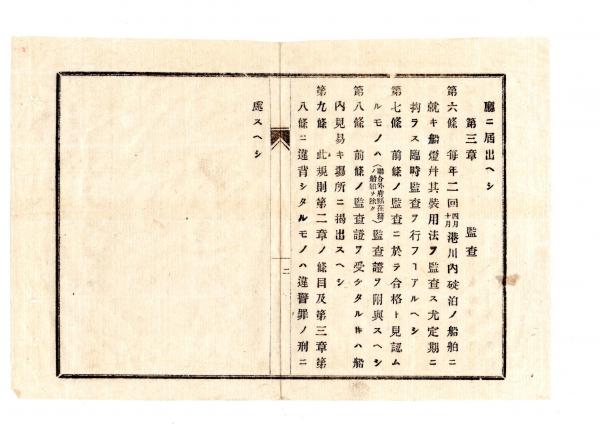 廳ニ屆出ヘシ
第三章 監査
第六條 毎年二回四月十月港川内碇泊ノ船舶ニ
就キ船燈幷其裝用法ヲ監査ス尤定期ニ
拘ラス臨時監査ヲ行フヿアルヘシ
第七條 前條ノ監査ニ於テ合格ト見認ム
ルモノハ(聯合外府縣在籍ノ船舶ヲ除ク)監査證ヲ附與スヘシ
第八條 前條ノ監査證ヲ受ケタル𪜈ハ船
内見易キ塲所ニ揭出スヘシ
第九條 此規則第二章ノ條目及第三章第
二
八條ニ違背シタルモノハ違警罪ノ刑ニ
處スヘシ